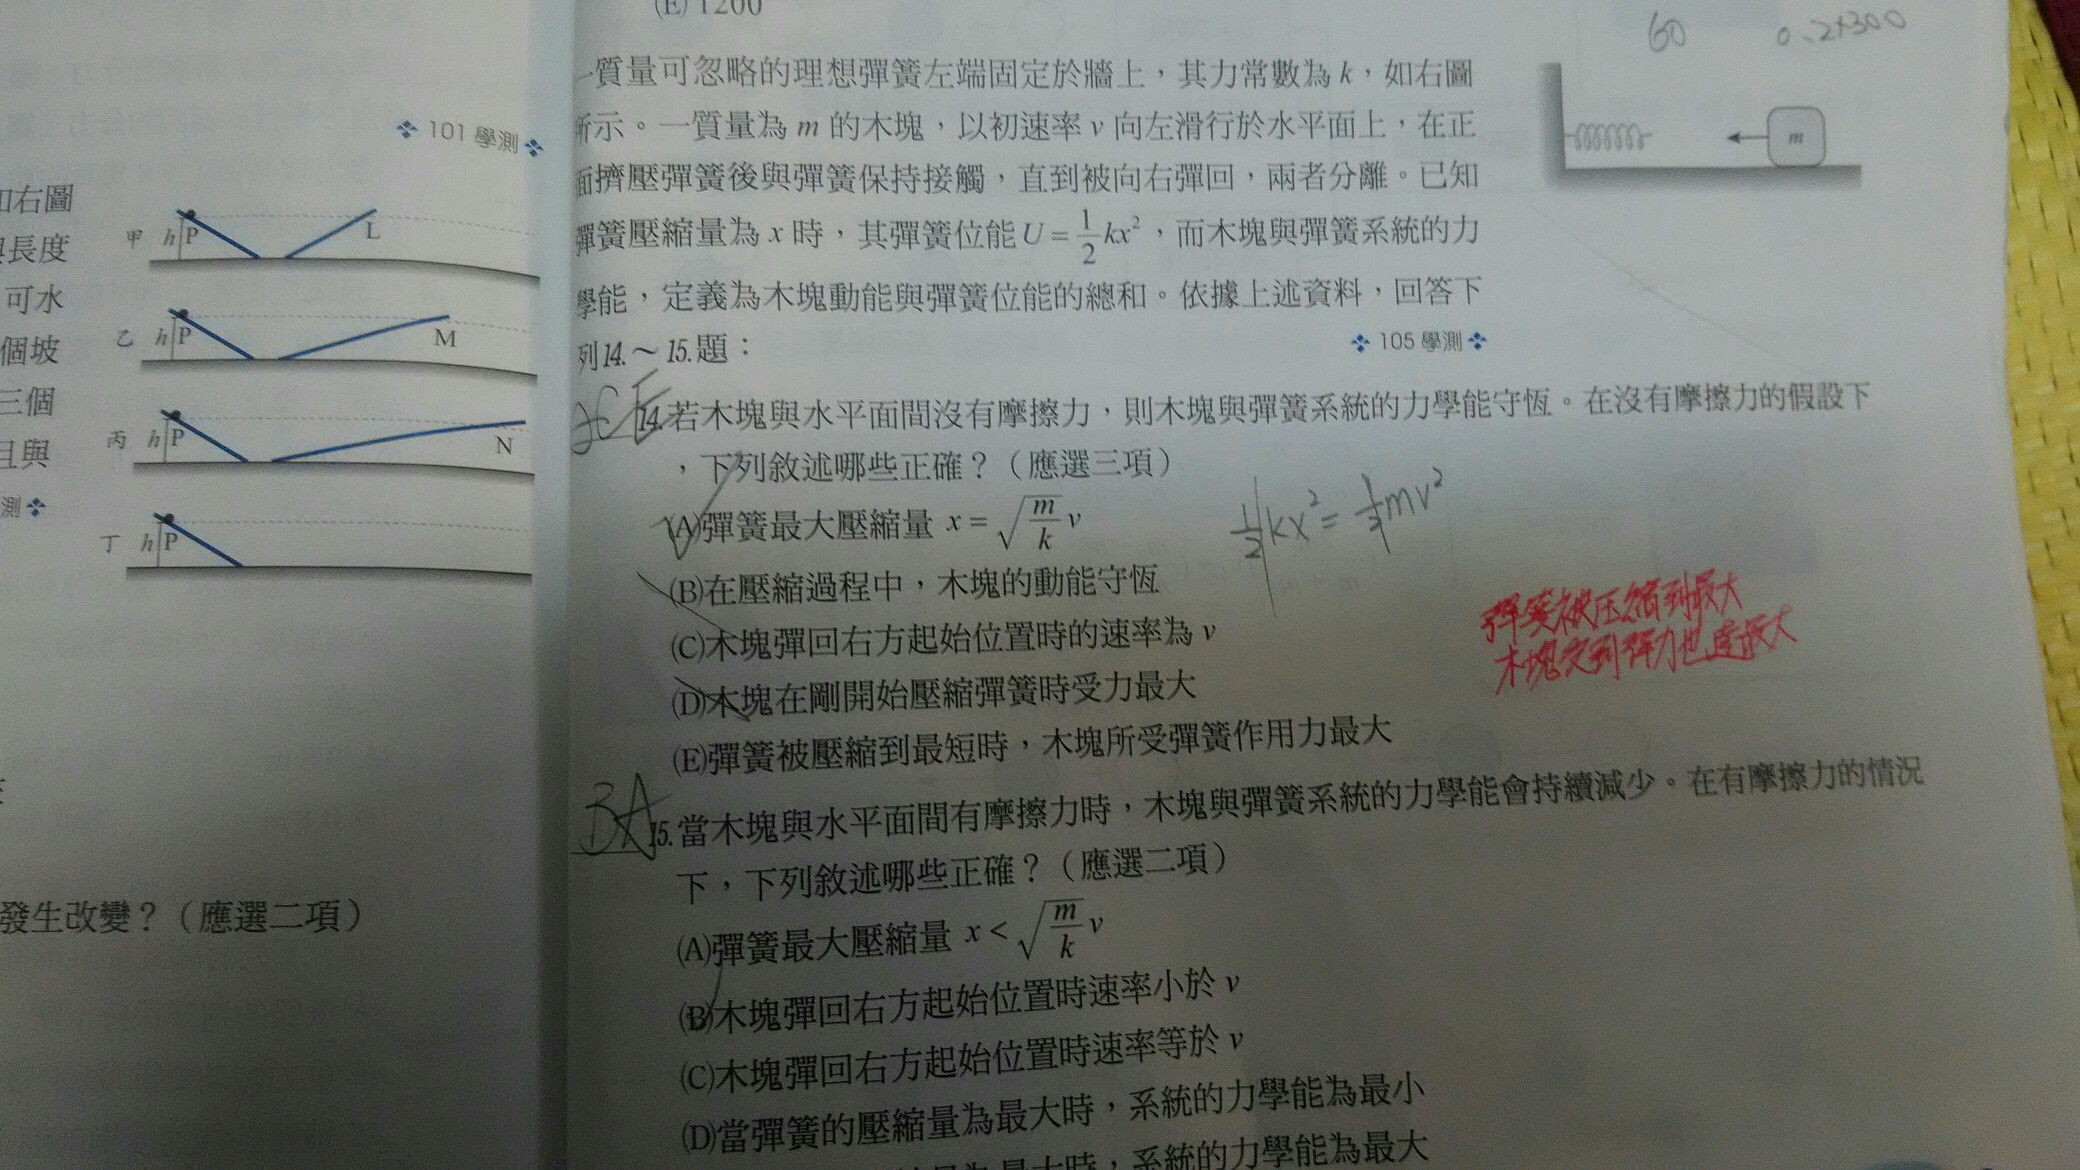 ❖ 101 學測 ❖
如右圖
長度
可水
個坡
三個
且與
測 ❖
甲 h P L
乙 h P M
丙 h P N
丁 h P
發生改變？（應選二項）
(E) 1200
60 0.2×300
一質量可忽略的理想彈簧左端固定於牆上，其力常數為 k，如右圖
所示。一質量為 m 的木塊，以初速率 v 向左滑行於水平面上，在正
面擠壓彈簧後與彈簧保持接觸，直到被向右彈回，兩者分離。已知
彈簧壓縮量為 x 時，其彈簧位能 U = 1/2 kx²，而木塊與彈簧系統的力
學能，定義為木塊動能與彈簧位能的總和。依據上述資料，回答下
列14.～15.題：
❖ 105 學測 ❖
m
CE
14.若木塊與水平面間沒有摩擦力，則木塊與彈簧系統的力學能守恆。在沒有摩擦力的假設下
，下列敘述哪些正確？（應選三項）
(A)彈簧最大壓縮量 x = √(m/k) v
1/2 kx² = 1/2 mv²
(B)在壓縮過程中，木塊的動能守恆
(C)木塊彈回右方起始位置時的速率為 v
彈簧被压縮到最大
木塊受到彈力也達最大
(D)木塊在剛開始壓縮彈簧時受力最大
(E)彈簧被壓縮到最短時，木塊所受彈簧作用力最大
BA
15.當木塊與水平面間有摩擦力時，木塊與彈簧系統的力學能會持續減少。在有摩擦力的情況
下，下列敘述哪些正確？（應選二項）
(A)彈簧最大壓縮量 x < √(m/k) v
(B)木塊彈回右方起始位置時速率小於 v
(C)木塊彈回右方起始位置時速率等於 v
(D)當彈簧的壓縮量為最大時，系統的力學能為最小
最大時，系統的力學能為最大